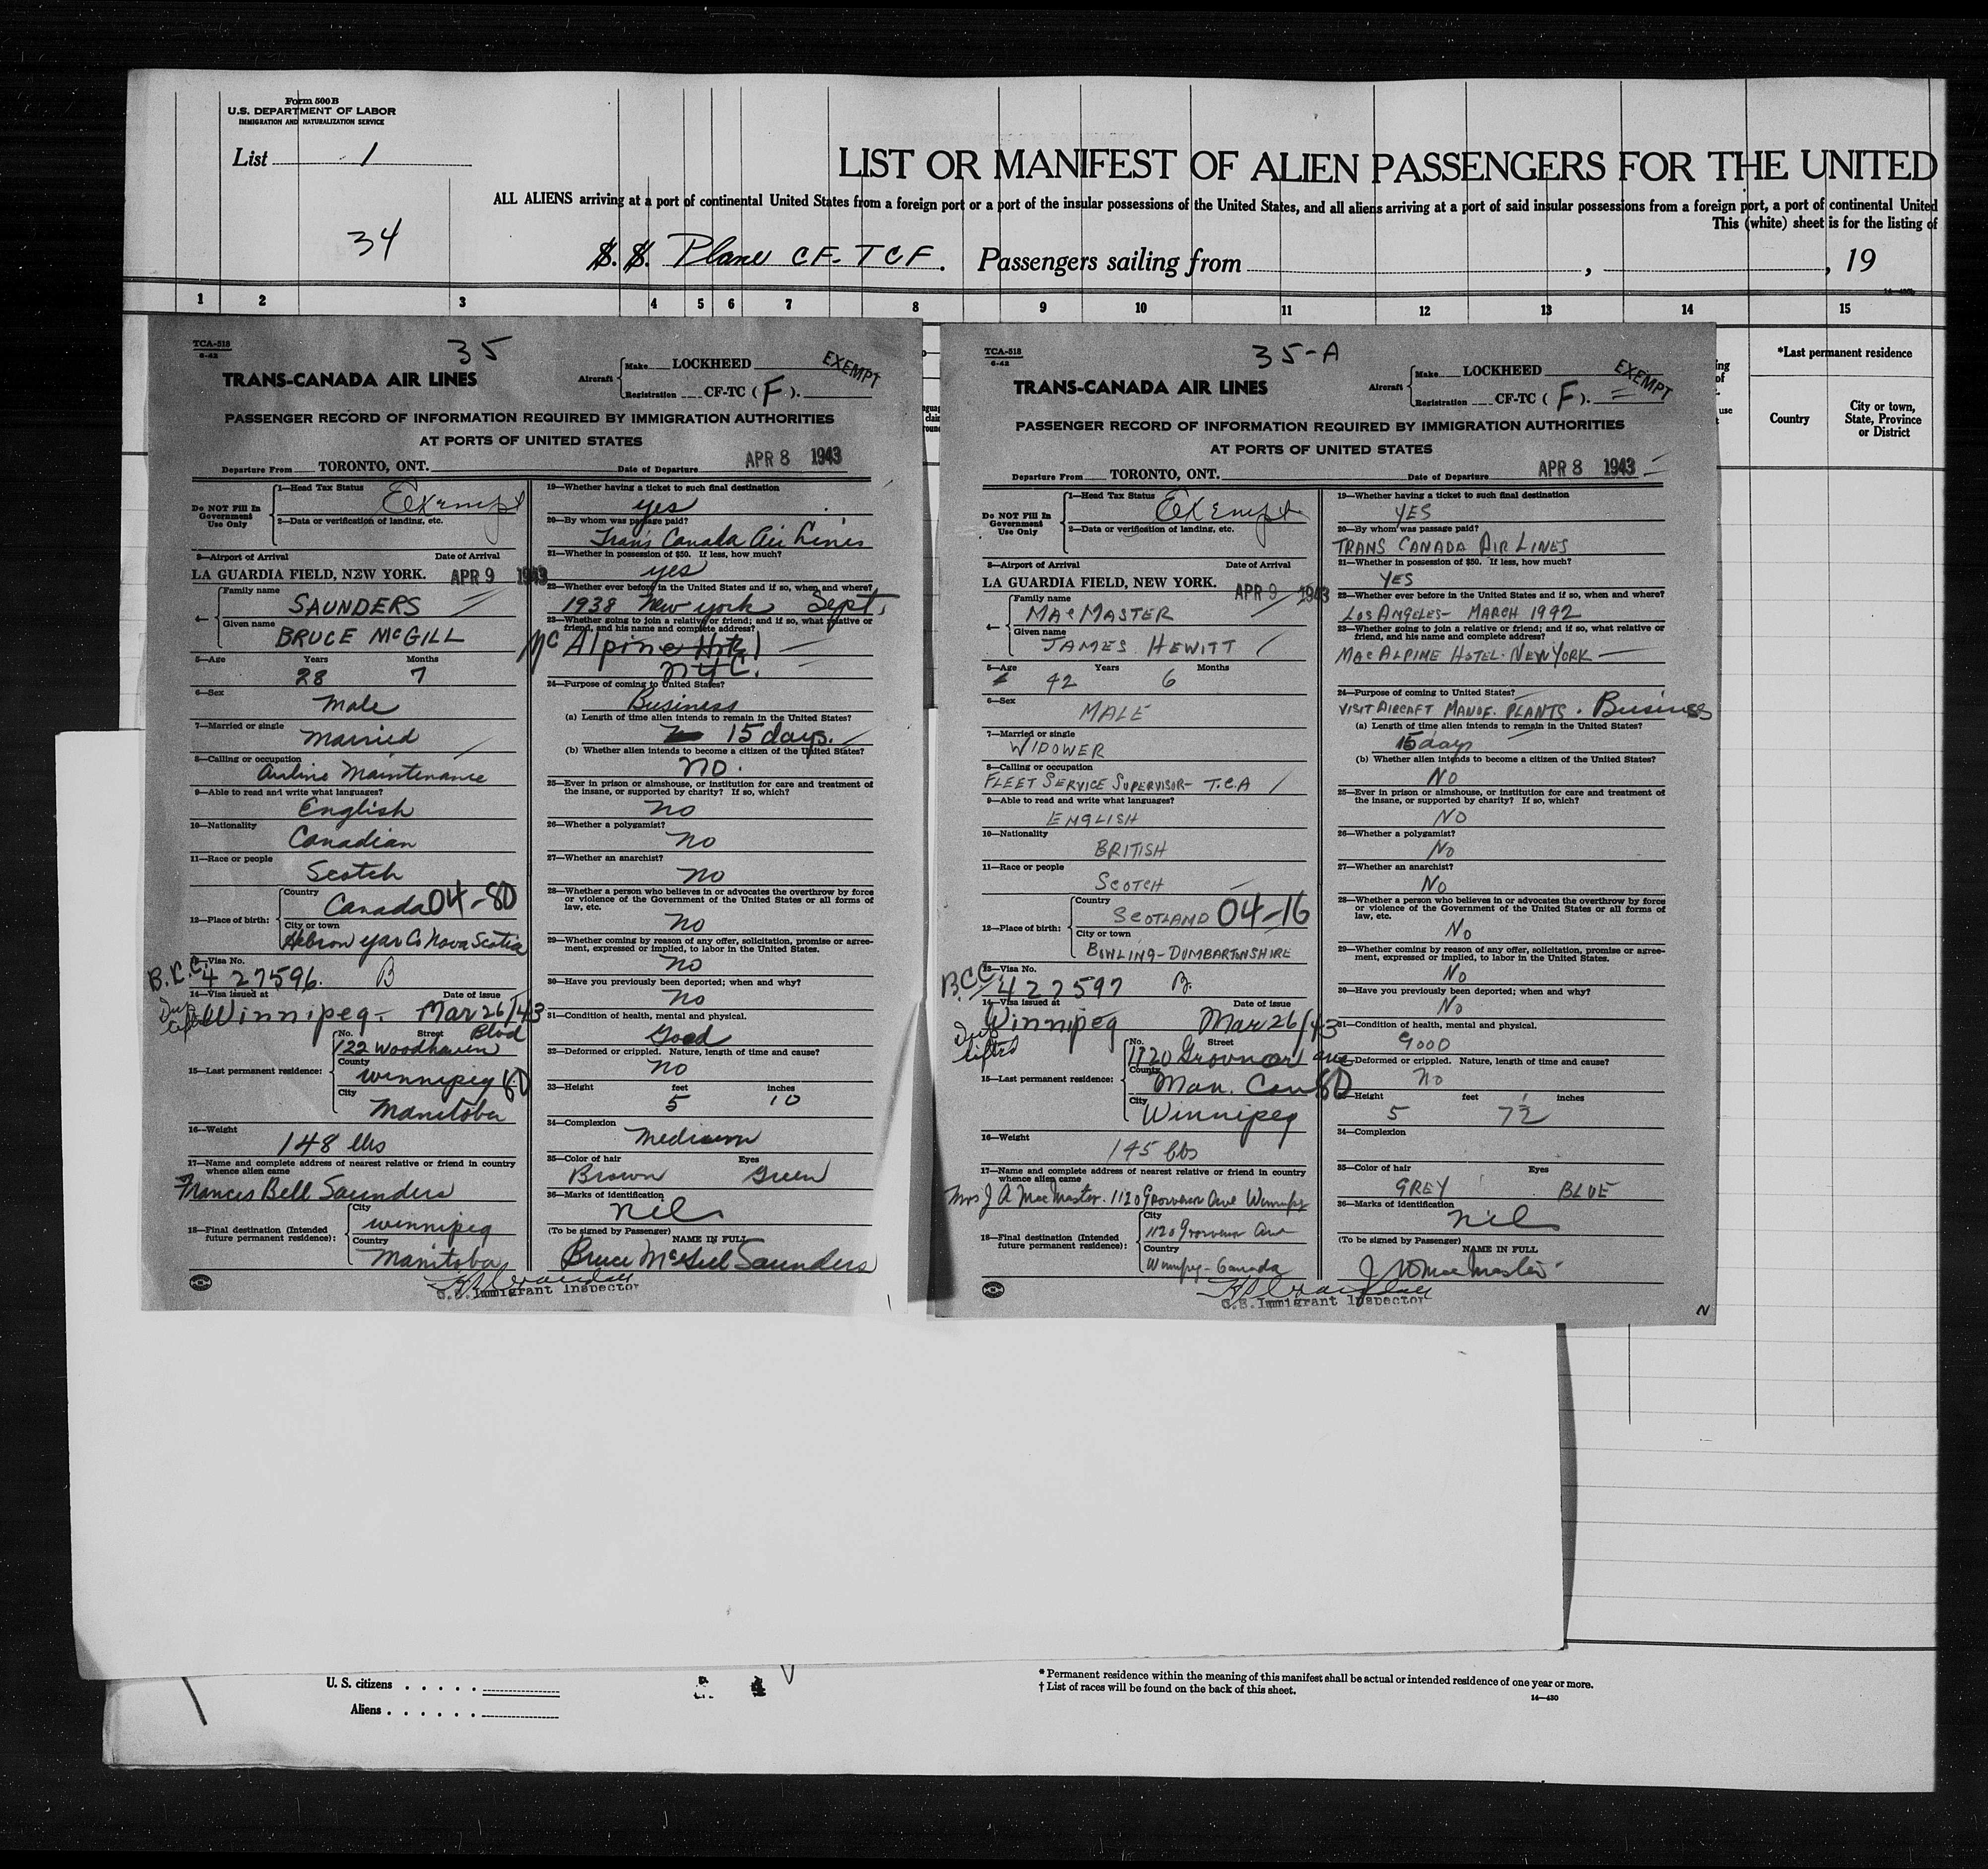 Form 500 B
U.S. DEPARTMENT OF LABOR
IMMIGRATION AND NATURALIZATION SERVICE
List 1
LIST OR MANIFEST OF ALIEN PASSENGERS FOR THE UNITED
ALL ALIENS arriving at a port of continental United States from a foreign port or a port of the insular possessions of the United States, and all aliens arriving at a port of said insular possessions from a foreign port, a port of continental United
This (white) sheet is for the listing of
34
S.S. Plane CF-TCF. Passengers sailing from , , 19
1 2 3 4 5 6 7 8 9 10 11 12 13 14 15
*Last permanent residence
Country
City or town, State, Province or District
TCA-518
6-42
35
TRANS-CANADA AIR LINES
Aircraft
Make LOCKHEED
Registration CF-TC ( F ).
EXEMPT
PASSENGER RECORD OF INFORMATION REQUIRED BY IMMIGRATION AUTHORITIES
AT PORTS OF UNITED STATES
Departure From TORONTO, ONT. Date of Departure APR 8 1943
Do NOT Fill In Government Use Only
1—Head Tax Status Exempt
2—Data or verification of landing, etc.
3—Airport of Arrival Date of Arrival
LA GUARDIA FIELD, NEW YORK. APR 9 1943
4—
Family name SAUNDERS
Given name BRUCE McGILL
5—Age Years 28 Months 7
6—Sex Male
7—Married or single Married
8—Calling or occupation Airline Maintenance
9—Able to read and write what languages? English
10—Nationality Canadian
11—Race or people Scotch
12—Place of birth:
Country Canada 04-80
City or town Hebron Yar Co Nova Scotia
13—Visa No. B.C.C. 427596. B
14—Visa issued at Winnipeg - Date of issue Mar 26/43
15—Last permanent residence:
No. Street 122 Woodhaven Blvd
County Winnipeg 80
City Manitoba
16—Weight 148 lbs
17—Name and complete address of nearest relative or friend in country whence alien came
Frances Bell Saunders
18—Final destination (Intended future permanent residence):
City Winnipeg
Country Manitoba
19—Whether having a ticket to such final destination
yes
20—By whom was passage paid?
Trans Canada Air Lines
21—Whether in possession of $50. If less, how much?
yes
22—Whether ever before in the United States and if so, when and where?
1938 New York Sept.
23—Whether going to join a relative or friend; and if so, what relative or friend, and his name and complete address?
McAlpine Hotel
NYC.
24—Purpose of coming to United States?
Business
(a) Length of time alien intends to remain in the United States?
15 days.
(b) Whether alien intends to become a citizen of the United States?
NO.
25—Ever in prison or almshouse, or institution for care and treatment of the insane, or supported by charity? If so, which?
no
26—Whether a polygamist?
no
27—Whether an anarchist?
no
28—Whether a person who believes in or advocates the overthrow by force or violence of the Government of the United States or all forms of law, etc.
no
29—Whether coming by reason of any offer, solicitation, promise or agreement, expressed or implied, to labor in the United States.
no
30—Have you previously been deported; when and why?
no
31—Condition of health, mental and physical.
Good
32—Deformed or crippled. Nature, length of time and cause?
no
33—Height feet 5 inches 10
34—Complexion Medium
35—Color of hair Brown Eyes Green
36—Marks of identification nil
(To be signed by Passenger) NAME IN FULL
Bruce McGill Saunders
U.S. Immigrant Inspector
TCA-518
6-42
35-A
TRANS-CANADA AIR LINES
Aircraft
Make LOCKHEED
Registration CF-TC ( F ).
EXEMPT
PASSENGER RECORD OF INFORMATION REQUIRED BY IMMIGRATION AUTHORITIES
AT PORTS OF UNITED STATES
Departure From TORONTO, ONT. Date of Departure APR 8 1943
Do NOT Fill In Government Use Only
1—Head Tax Status Exempt
2—Data or verification of landing, etc.
3—Airport of Arrival Date of Arrival
LA GUARDIA FIELD, NEW YORK. APR 9 1943
4—
Family name MACMASTER
Given name JAMES HEWITT
5—Age Years 42 Months 6
6—Sex MALE
7—Married or single WIDOWER
8—Calling or occupation FLEET SERVICE SUPERVISOR- T.C.A
9—Able to read and write what languages? ENGLISH
10—Nationality BRITISH
11—Race or people SCOTCH
12—Place of birth:
Country SCOTLAND 04-16
City or town BOWLING-DUMBARTONSHIRE
13—Visa No. BCC 427597 B.
14—Visa issued at Winnipeg Date of issue Mar 26/43
15—Last permanent residence:
No. Street 1120 Grosvenor ave
County Man. Can 80
City Winnipeg
16—Weight 145 lbs
17—Name and complete address of nearest relative or friend in country whence alien came
Mrs J A MacMaster. 1120 Grosvenor Ave Winnipeg
18—Final destination (Intended future permanent residence):
City 1120 Grosvenor Ave
Country Winnipeg - Canada
19—Whether having a ticket to such final destination
YES
20—By whom was passage paid?
TRANS CANADA AIR LINES
21—Whether in possession of $50. If less, how much?
YES
22—Whether ever before in the United States and if so, when and where?
LOS ANGELES- MARCH 1942
23—Whether going to join a relative or friend; and if so, what relative or friend, and his name and complete address?
MACALPINE HOTEL- NEW YORK
24—Purpose of coming to United States?
VISIT AIRCRAFT MANUF. PLANTS. Business
(a) Length of time alien intends to remain in the United States?
15 days
(b) Whether alien intends to become a citizen of the United States?
NO
25—Ever in prison or almshouse, or institution for care and treatment of the insane, or supported by charity? If so, which?
NO
26—Whether a polygamist?
NO
27—Whether an anarchist?
NO
28—Whether a person who believes in or advocates the overthrow by force or violence of the Government of the United States or all forms of law, etc.
NO
29—Whether coming by reason of any offer, solicitation, promise or agreement, expressed or implied, to labor in the United States.
NO
30—Have you previously been deported; when and why?
NO
31—Condition of health, mental and physical.
GOOD
Deformed or crippled. Nature, length of time and cause?
no
Height feet 5 inches 7½
34—Complexion
35—Color of hair GREY Eyes BLUE
36—Marks of identification nil
(To be signed by Passenger) NAME IN FULL
J H MacMaster
U.S. Immigrant Inspector
N
U. S. citizens
Aliens
* Permanent residence within the meaning of this manifest shall be actual or intended residence of one year or more.
† List of races will be found on the back of this sheet.
14—430